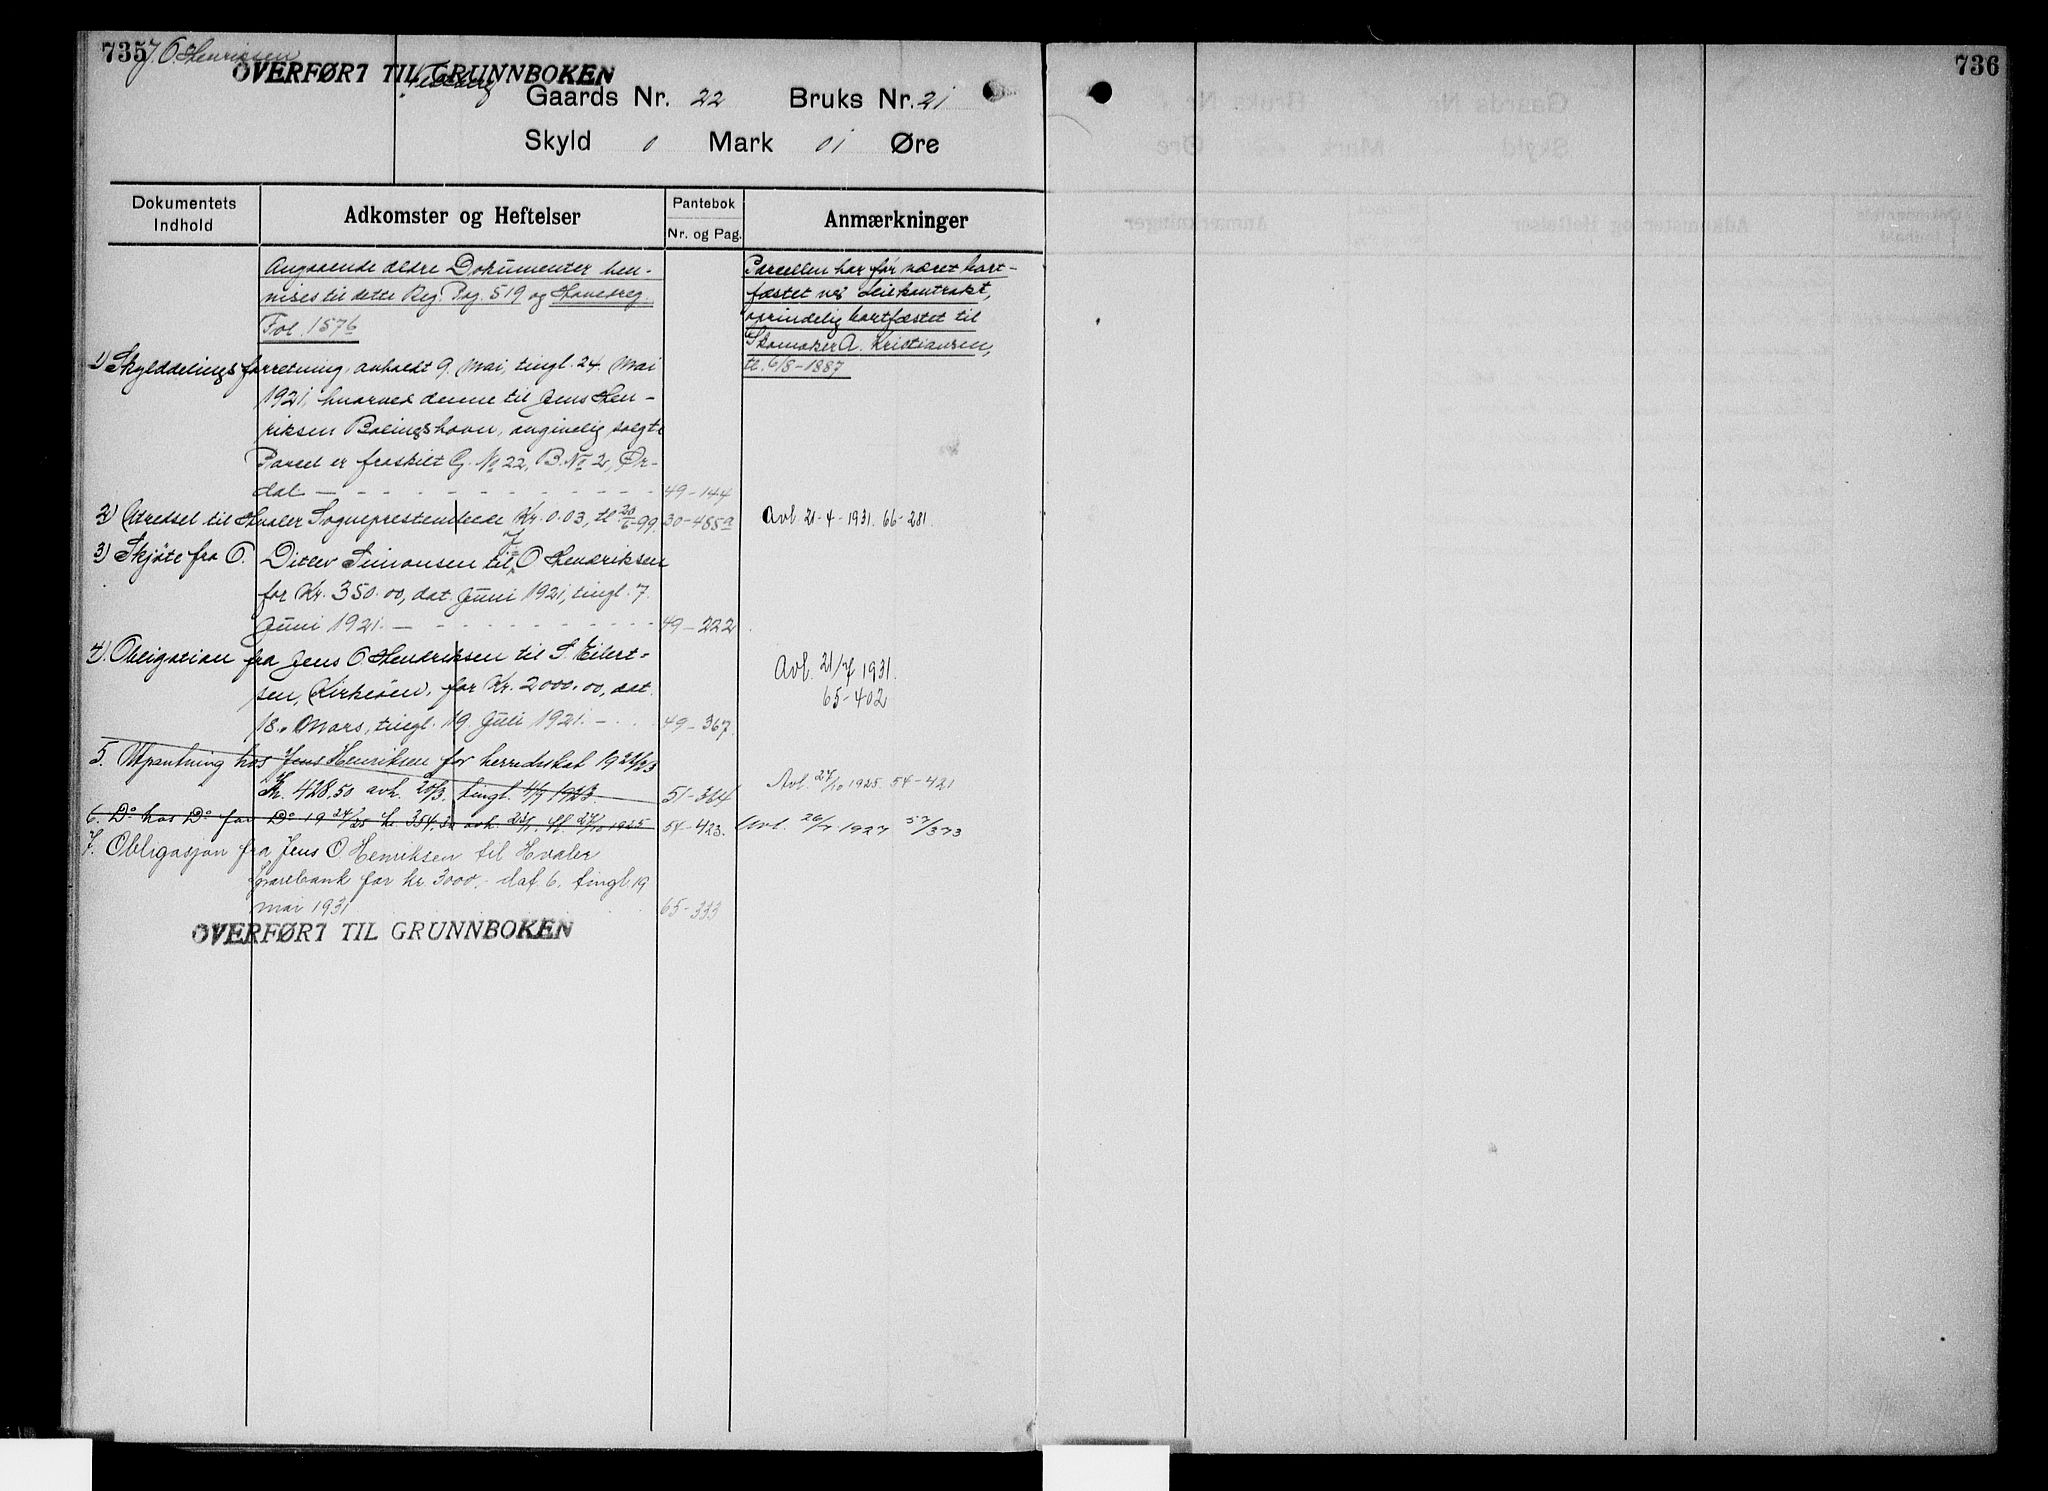 735
J. O. Henriksen
OVERFØRT TIL GRUNNBOKEN
Gaards Nr. 22 Bruks Nr. 21
Skyld 0 Mark 01 Øre
Dokumentets Indhold
Adkomster og Heftelser
Pantebok
Nr. og Pag.
Anmærkninger
Angaaende ældre Dokumenter hen-
vises til dette Reg. Pag. 519 og Hovedreg.
Fol. 1576
Parcellen har før været bort-
fæstet ved Leiekontrakt,
oprindelig bortfæstet til
Skomaker A. Kristiansen,
tl. 6/8-1887
1) Skylddelingsforretning, avholdt 9. Mai, tingl. 24. Mai
1921, hvorved denne til Jens Hen-
riksen angivelig solgte
Parcel er fraskilt G. No 22, B. No 2, Ør-
dal 49-144
2) Utredsel til Hvaler Sogneprestembede Kr. 0.03, tl. 20/6-99. 30-488a Avl 21-4-1931. 66-281.
3) Skjøte fra O. Ditlev Simonsen til J. O Hendriksen
for Kr. 350.00, dat. Juni 1921, tingl. 7.
Juni 1921. 49-222
4). Obligation fra Jens O. Hendriksen til S. Eilert-
sen, Kirkeøen, for Kr. 2000.00, dat.
18. Mars, tingl. 19. Juli 1921. 49-367
Avl. 21/7 1931.
65-402
5. Utpantning hos Jens Henriksen for herredsskat 1922/23
Kr. 428.50 avh. 20/3. tingl. 4/9 1923. 51-364 Avl. 27/10 1925. 54-421
6. Do hos Do for Do 1924/25 kr. 354.32 avh. 23/9. tl 27/10 1925 54-423. Avl. 26/7 1927 57/373
7. Obligasjon fra Jens O. Henriksen til Hvaler
sparebank for kr. 3000.- dat. 6. tingl. 19
mai 1931 65-333
OVERFØRT TIL GRUNNBOKEN
736